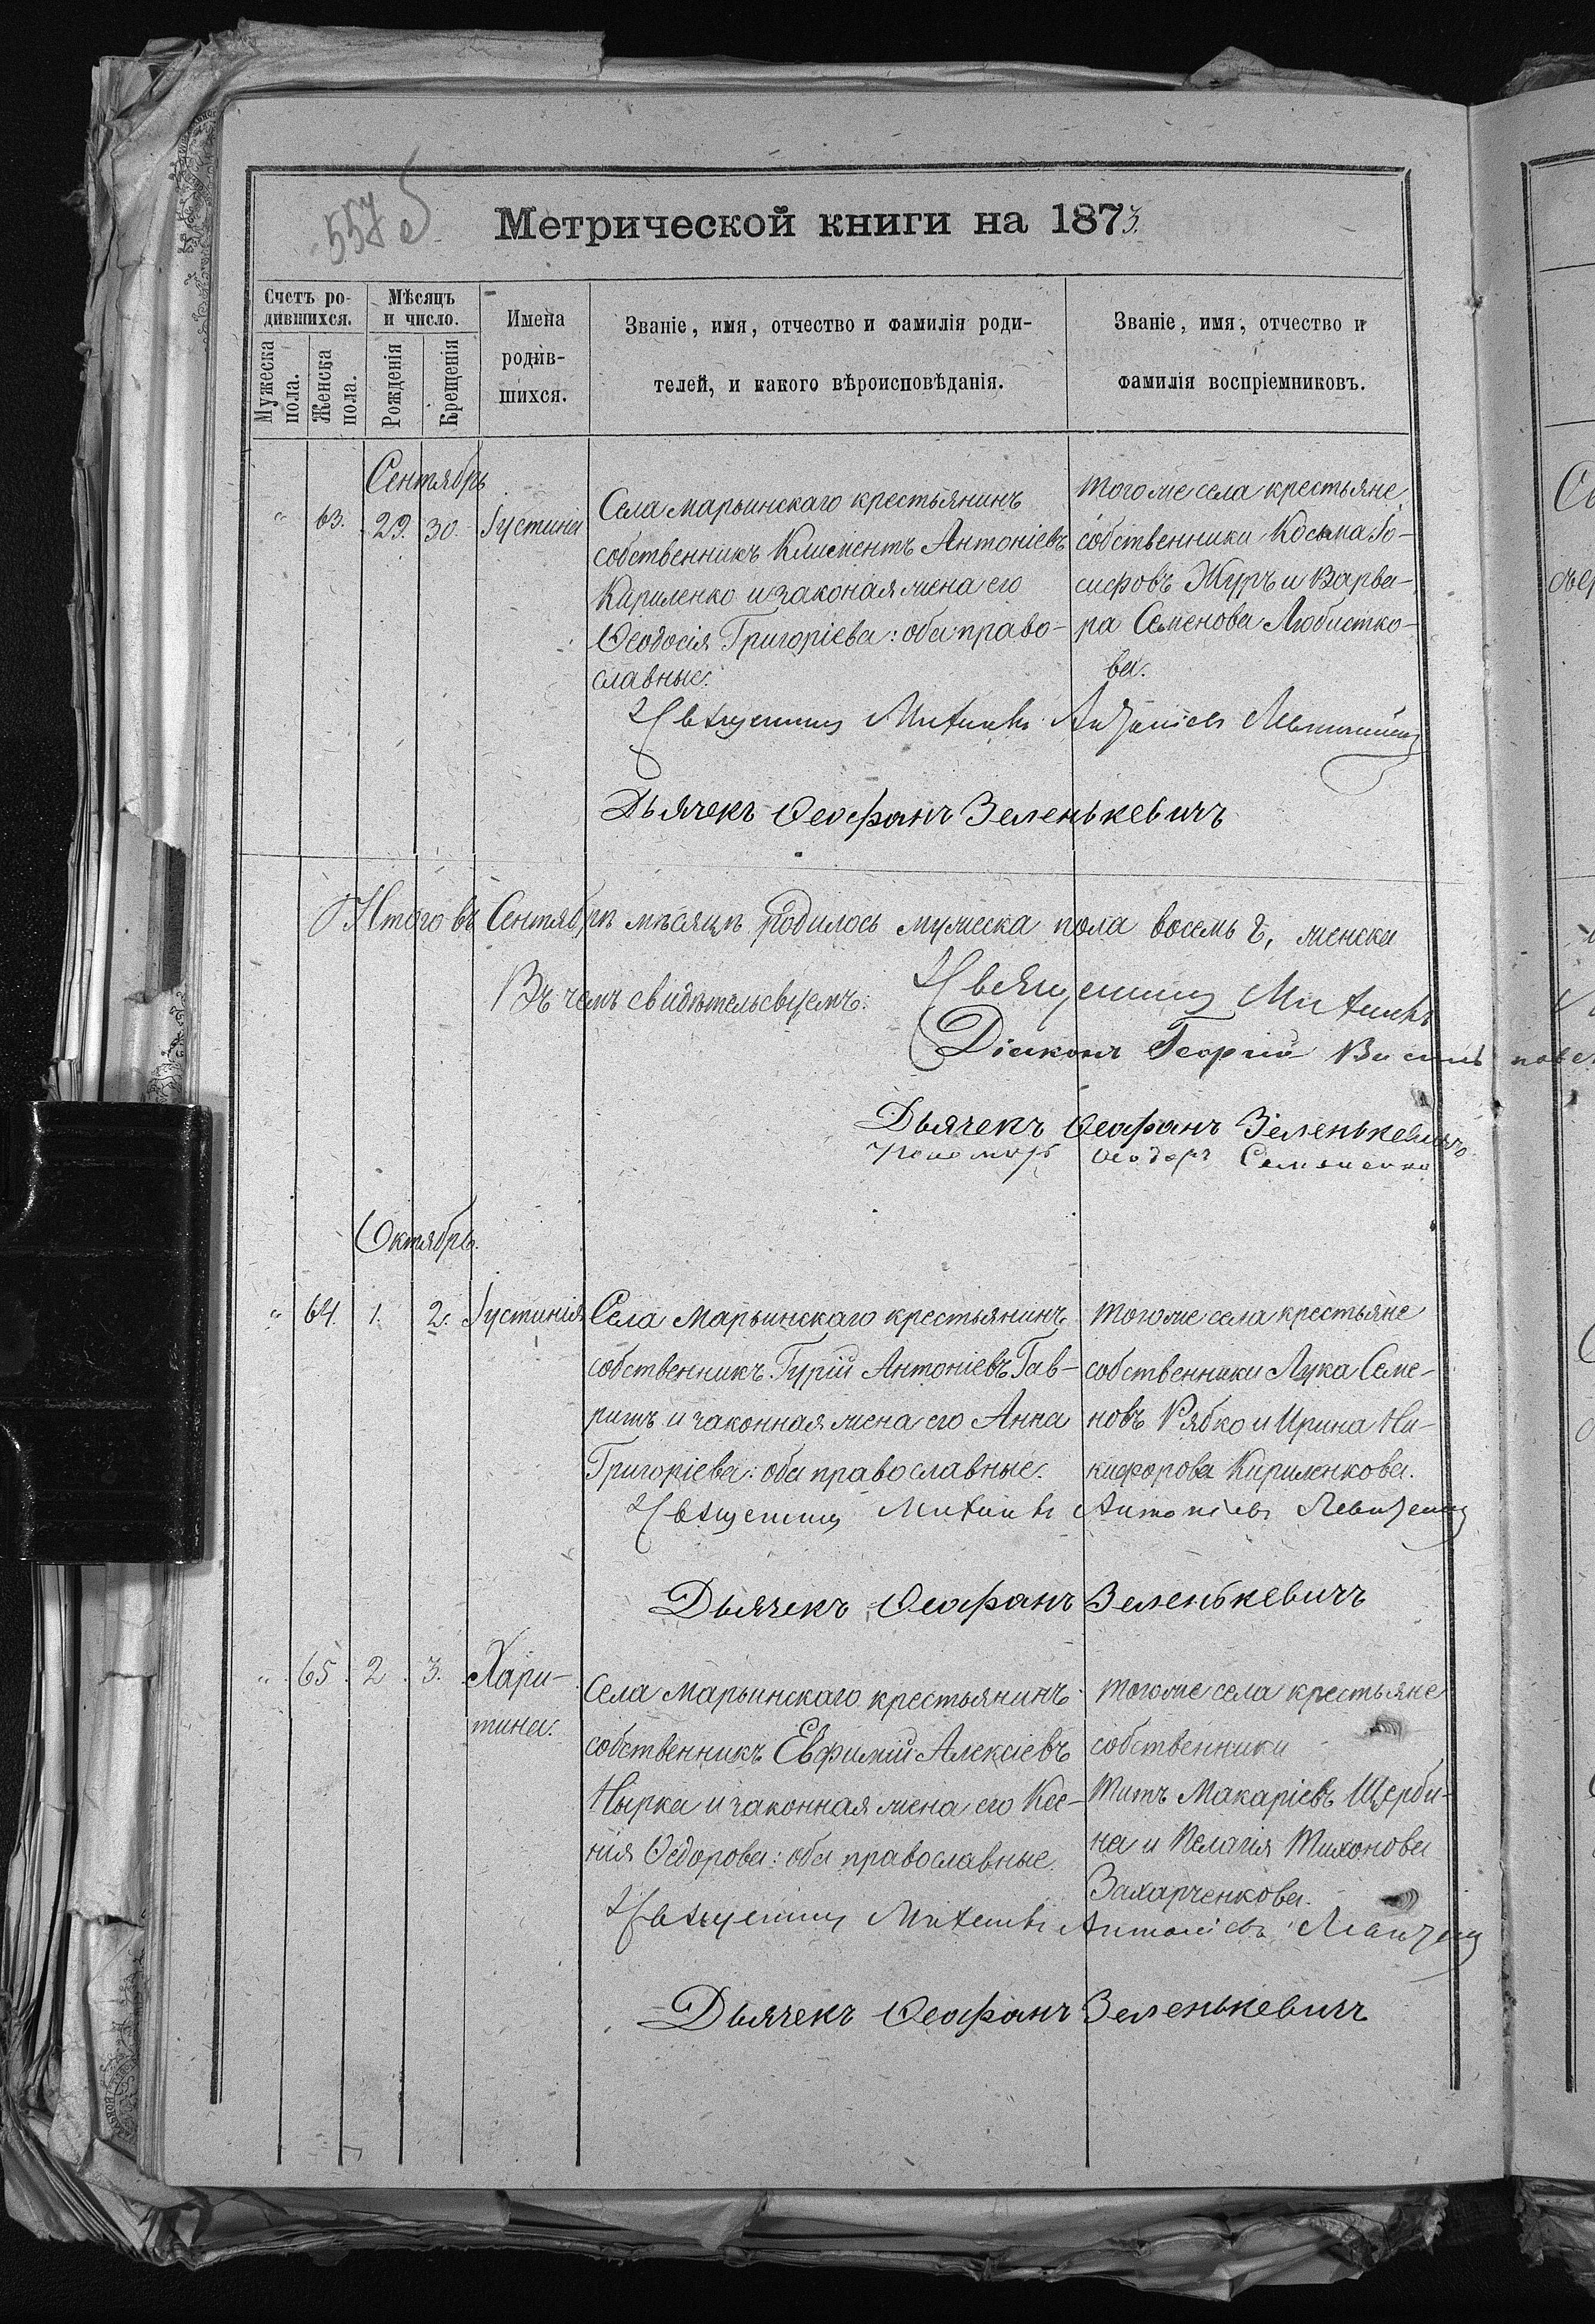 557
Метрической книги на 1873.
Счетъ ро-
дившихся.
Мѣсяцъ
и число.
Мужеска
пола.
Женска
пола.
Рожденія
Крещенія
Имена
родив-
шихся.
Званіе, имя, отчество и фамилія роди-
телей, и какого вѣроисповѣданія.
Званіе, имя, отчество и
фамилія воспріемниковъ.
Сентябрь
" 63. 29. 30. Іустина
Села Марьинскаго крестьянинъ
собственникъ Климентъ Антоніевъ
Кириленко и законая жена его
Ѳеодосія Григоріева: оба право-
славные.
Тогоже села крестьяне
собственники Косьма Іо-
сифовъ Журъ и Варва-
ра Семенова Любистко-
ва.
Священник Антоніев
Дьячекъ Ѳеофанъ Зеленькевичъ
Итого въ Сентябрѣ мѣсяцѣ родилось мужеска пола восемь 8, женска
Въ чемъ свидѣтельсвуемъ:
Священник
Діаконъ Георгій
Дьячекъ Ѳеофанъ Зеленькевичъ
Пономарь Ѳеодоръ
Октябрь.
" 64. 1. 2. Іустинія
Села Марьинскаго крестьянинъ
собственникъ Гурій Антоніевъ Гав-
ришъ и законная жена его Анна
Григоріева: оба православные.
Тогоже села крестьяне
собственники Лука Семе-
новъ Рябко и Ирина Ни-
кифорова Кириленкова.
Священник Антоніевъ
Дьячекъ Ѳеофанъ Зеленькевичъ
" 65. 2. 3. Хари-
тина.
Села Марьинскаго крестьянинъ
собственникъ Евфимій Алексіевъ
Нырка и законная жена его Ксе-
нія Ѳедорова: оба православные.
Тогоже села крестьяне
собственники
Титъ Макаріевъ Щерби-
на и Пелагія Тихонова
Захарченкова.
Священник Антоніевъ
Дьячекъ Ѳеофанъ Зеленькевичъ